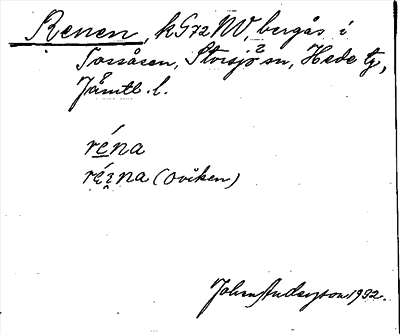 Renen, kG72NV, bergås i
Torråsen, Storsjö sn, Hede tg,
Jämtl. l.
réna
réi̯na (Oviken)
John Andersson 1932.